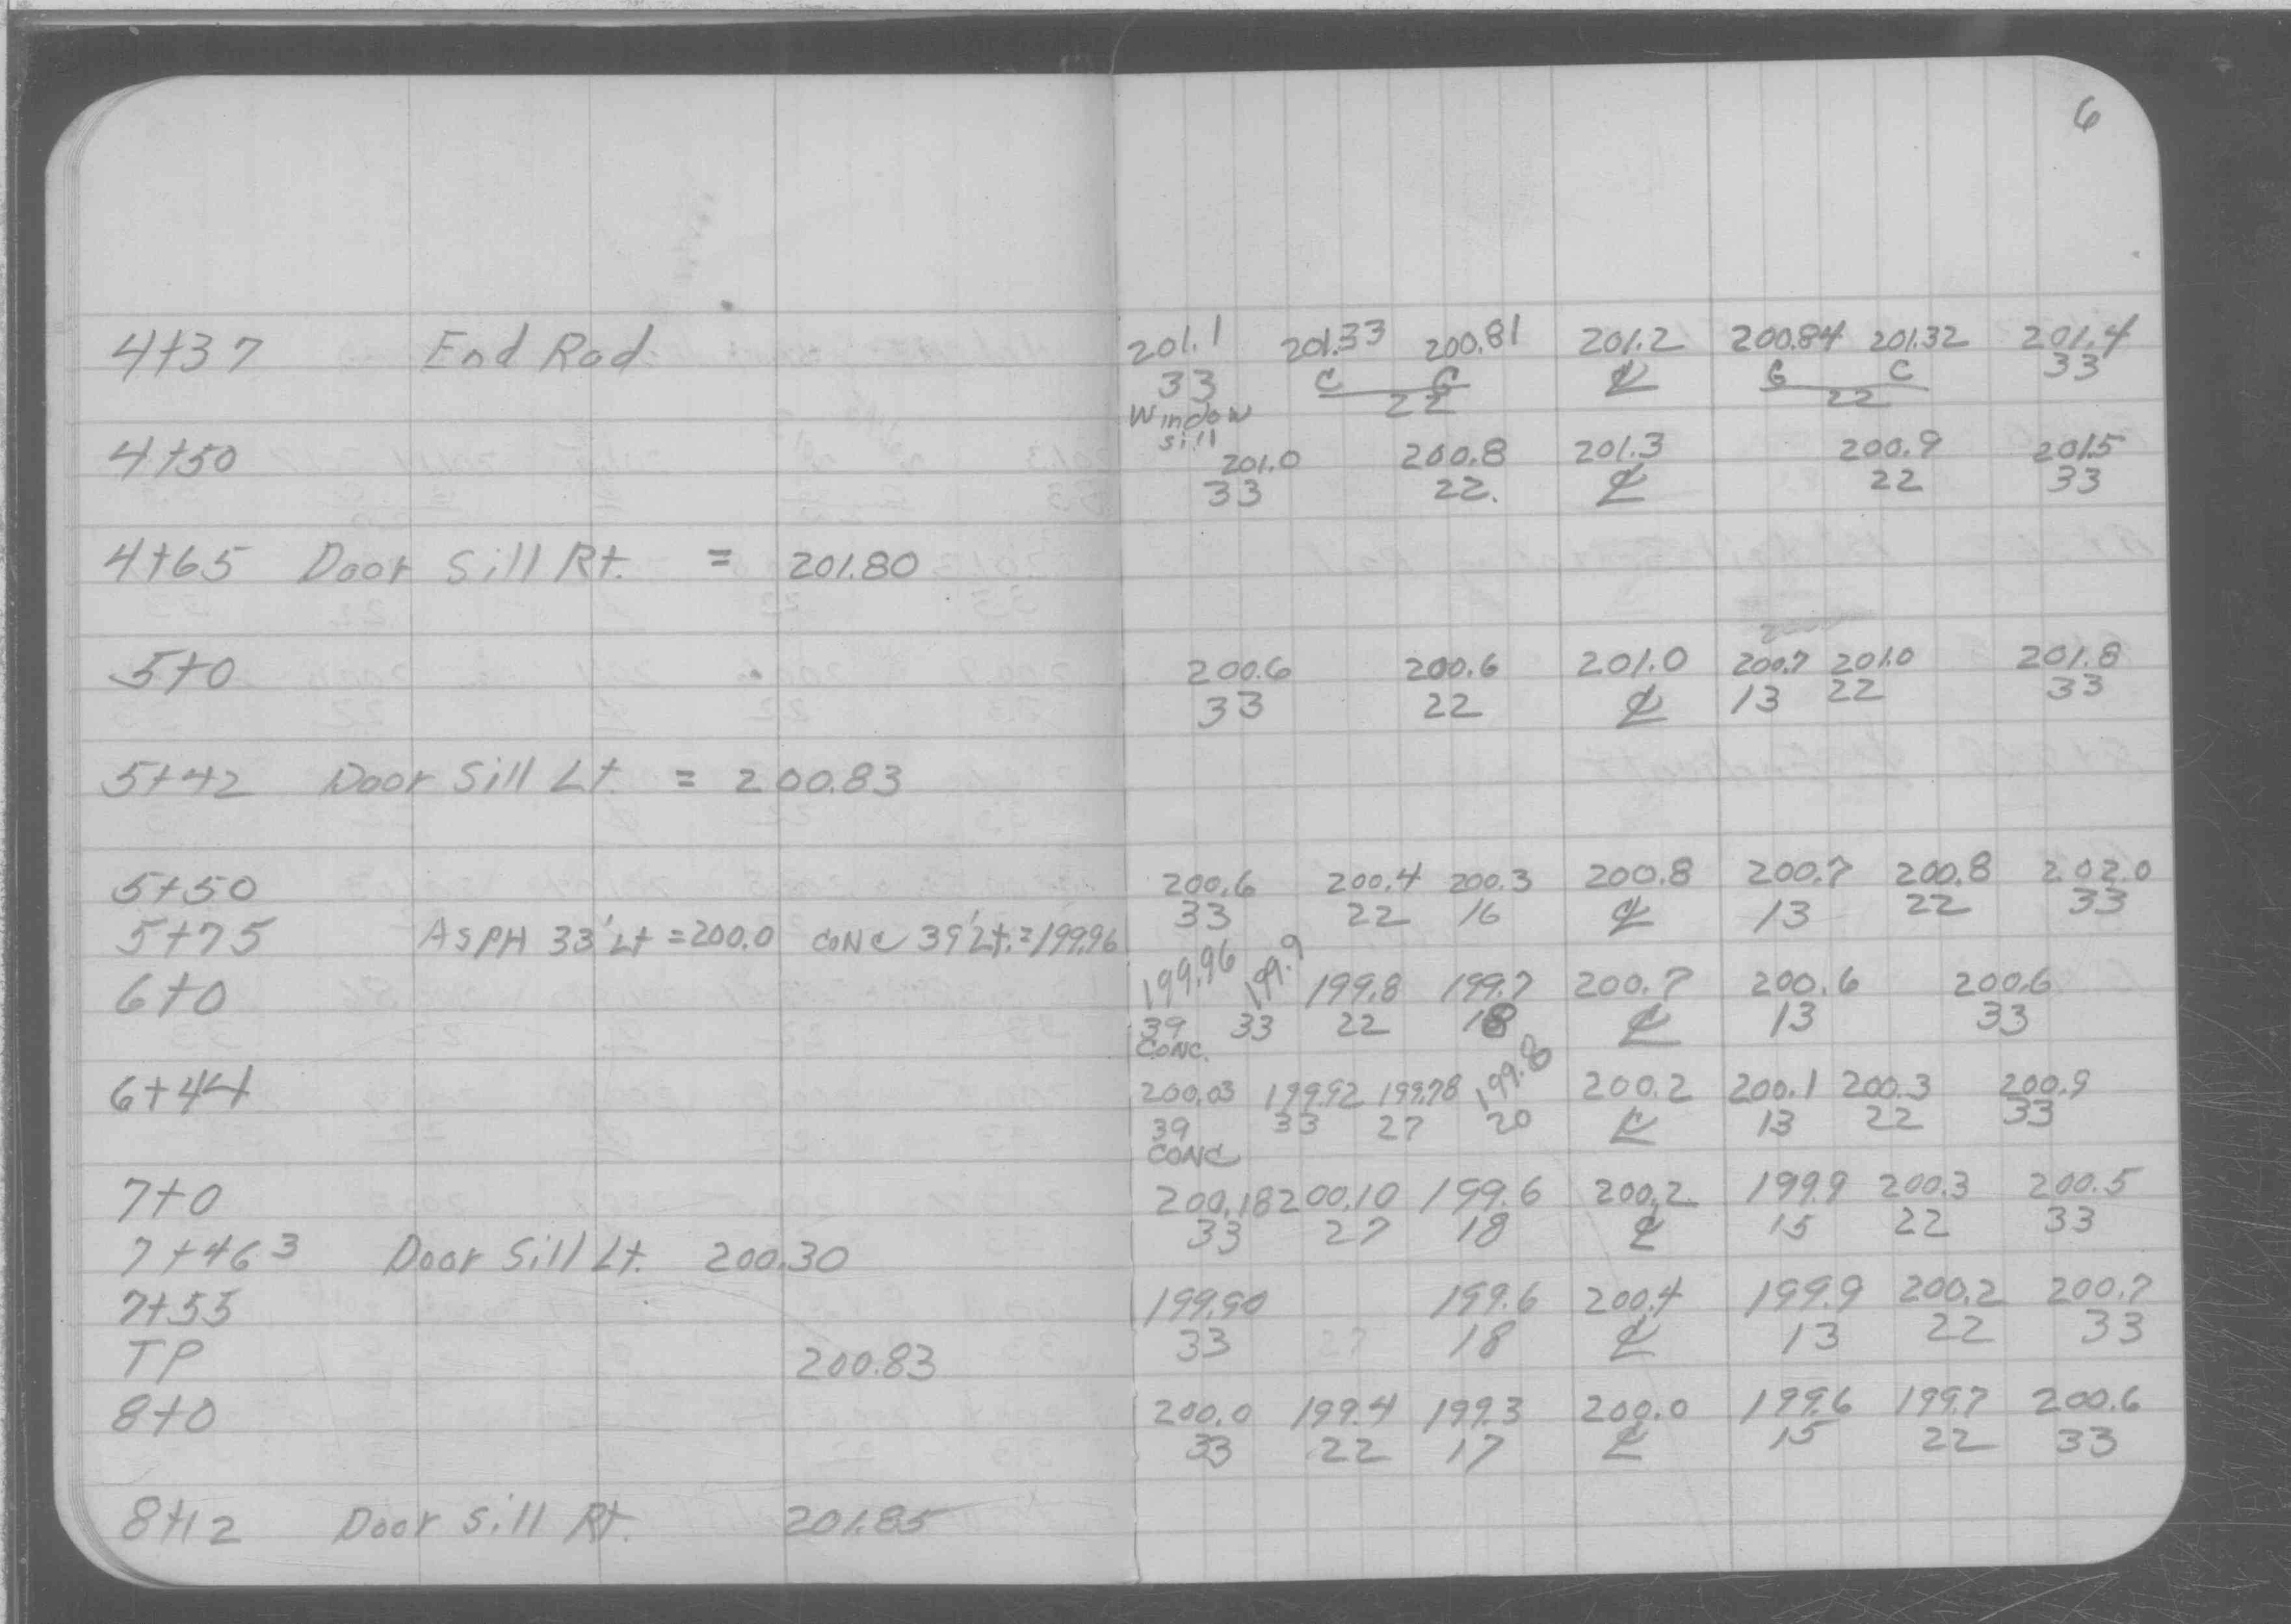 6
4+37 End Rad. 201.1 201.33 200.81 201.2 200.84 201.32 201.4
33 C G ℄ G C 33
22 22
Window
sill
4+50 201.0 200.8 201.3 200.9 201.5
33 22. ℄ 22 33
4+65 Door Sill Rt. = 201.80
5+0 200.6 200.6 201.0 200.7 201.0 201.8
33 22 ℄ 13 22 33
5+42 Door Sill Lt. = 200.83
5+50 200.6 200.4 200.3 200.8 200.7 200.8 202.0
33 22 16 ℄ 13 22 33
5+75 ASPH 33' Lt = 200.0 CONC 39' Lt. = 199.96
6+0 199.96 199.9 199.8 199.7 200.7 200.6 200.6
39 33 22 18 ℄ 13 33
CONC.
6+44 200.03 199.92 199.78 199.8 200.2 200.1 200.3 200.9
39 33 27 20 ℄ 13 22 33
CONC
7+0 200.18 200.10 199.6 200.2 199.9 200.3 200.5
33 27 18 ℄ 15 22 33
7+46 3 Door Sill Lt. 200.30
7+55 199.90 199.6 200.4 199.9 200.2 200.7
33 27 18 ℄ 13 22 33
TP 200.83
8+0 200.0 199.4 199.3 200.0 199.6 199.7 200.6
33 22 17 ℄ 15 22 33
8+12 Door sill Rt. 201.85